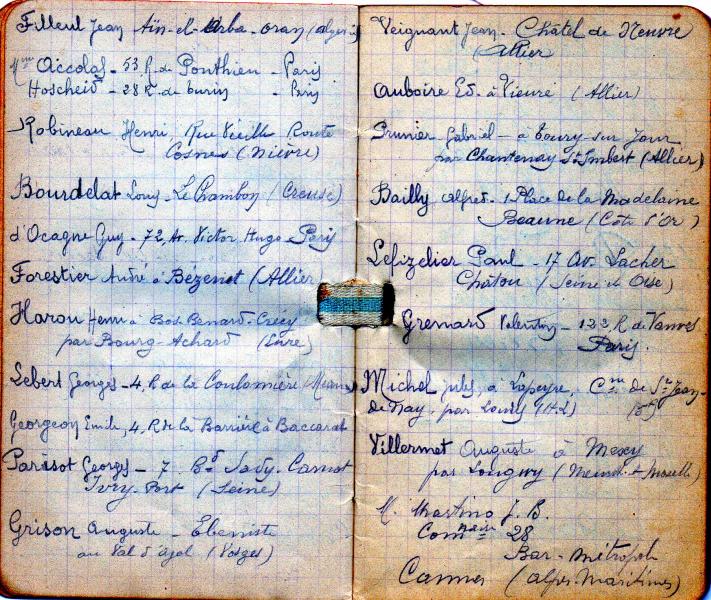 Filleul Jean Aïn-el-Arba-Oran (Algérie)
Mme Accolas - 53 R. de Ponthieu - Paris
Hoscheid - 28 R. de Paris
Robineau Henri, Rue Vieille Route
Cosnes (Nièvre)
Bourdelat Louis - Le Chambon (Creuse)
d'Ocagne Guy - 72, Av. Victor Hugo - Paris
Forestier André à Bézenet (Allier
Harou Henri à Bosc Benard-Crécy
par Bourg-Achard (Eure)
Lebert Georges - 4, R. de la Coulonnière
Georgeon Emile, 4, R. de la Barrière à Baccarat
Parisot Georges - 7. Bd Sady. Carnot
Ivry-Port (Seine)
Grison Auguste - Ebeniste
au Val d'Ajol (Vosges)
Veignant Jean - Châtel de Neuvre
(Allier
Auboire Ed. à Vieure (Allier)
Prunier Gabriel - à Toury-sur-Jour
par Chantenay St Imbert (Allier)
Bailly Alfred - 1 Place de la Madelaine
Beaune (Côte d'Or)
Lefizelier Paul - 17 Av. Lacher
Chatou (Seine et Oise)
Grenard Valentin - 122 R. de Vanves
Paris.
Michel Jules à Lapeyre, Cne de St Jean-
de Nay, par
Villermet Auguste à Mexy
par Longwy (Meurth. et Moselle)
M. Martino J. B.
28
Bar - Métropole
Cannes (Alpes Maritimes)